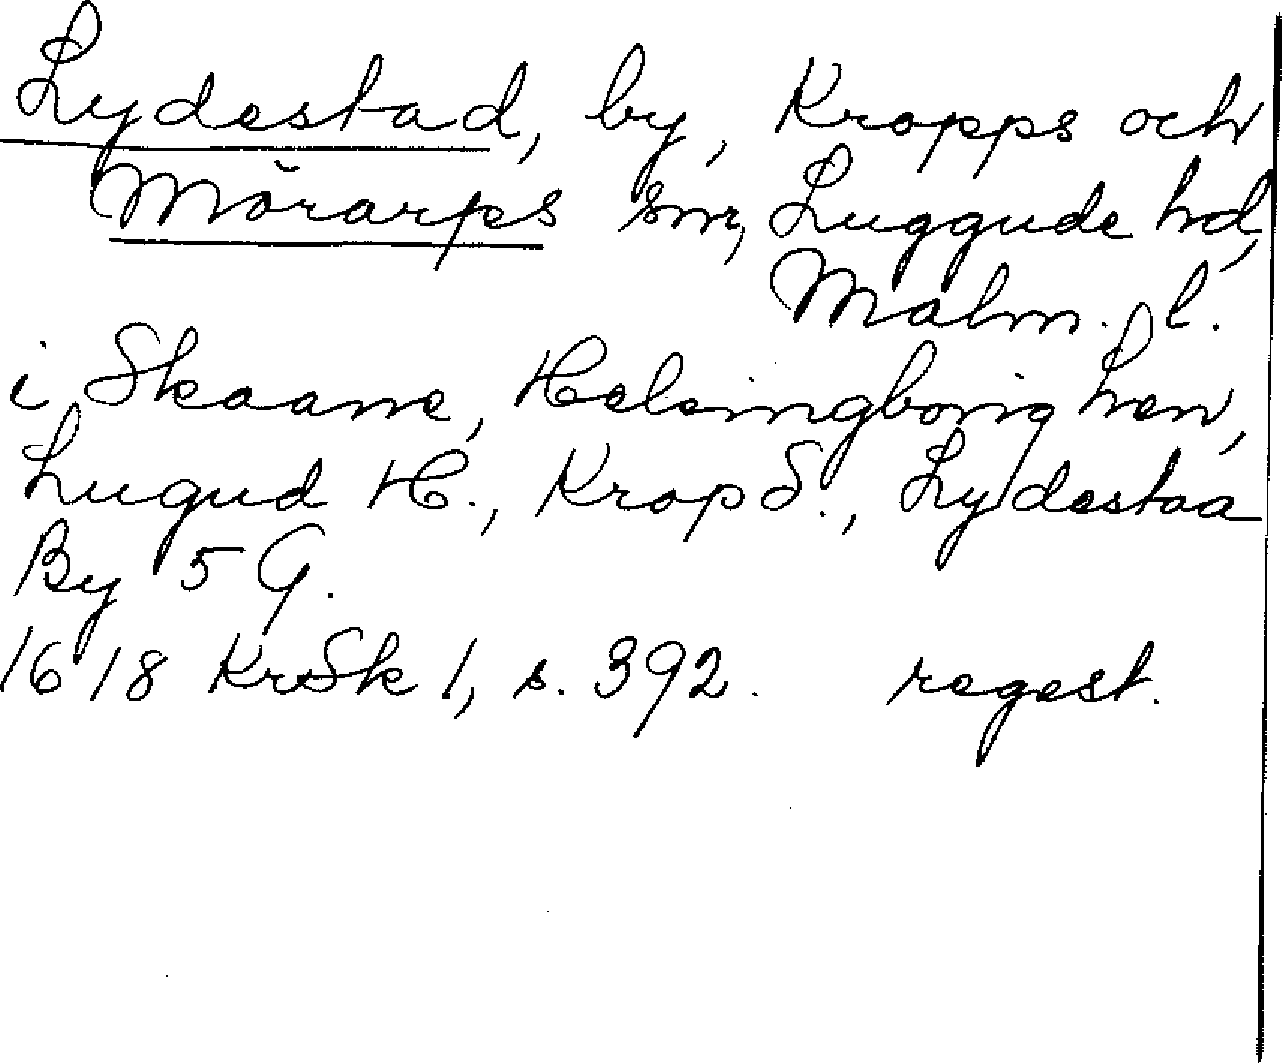 Lydestad, by, Kropps och
Mörarps snr, Luggude hd,
Malm. l.
i Skaane, Helsingborig Len,
Lugud H., Krop S., Lydestaa
By 5 G.
1618 KrSk 1, s. 392. regest.